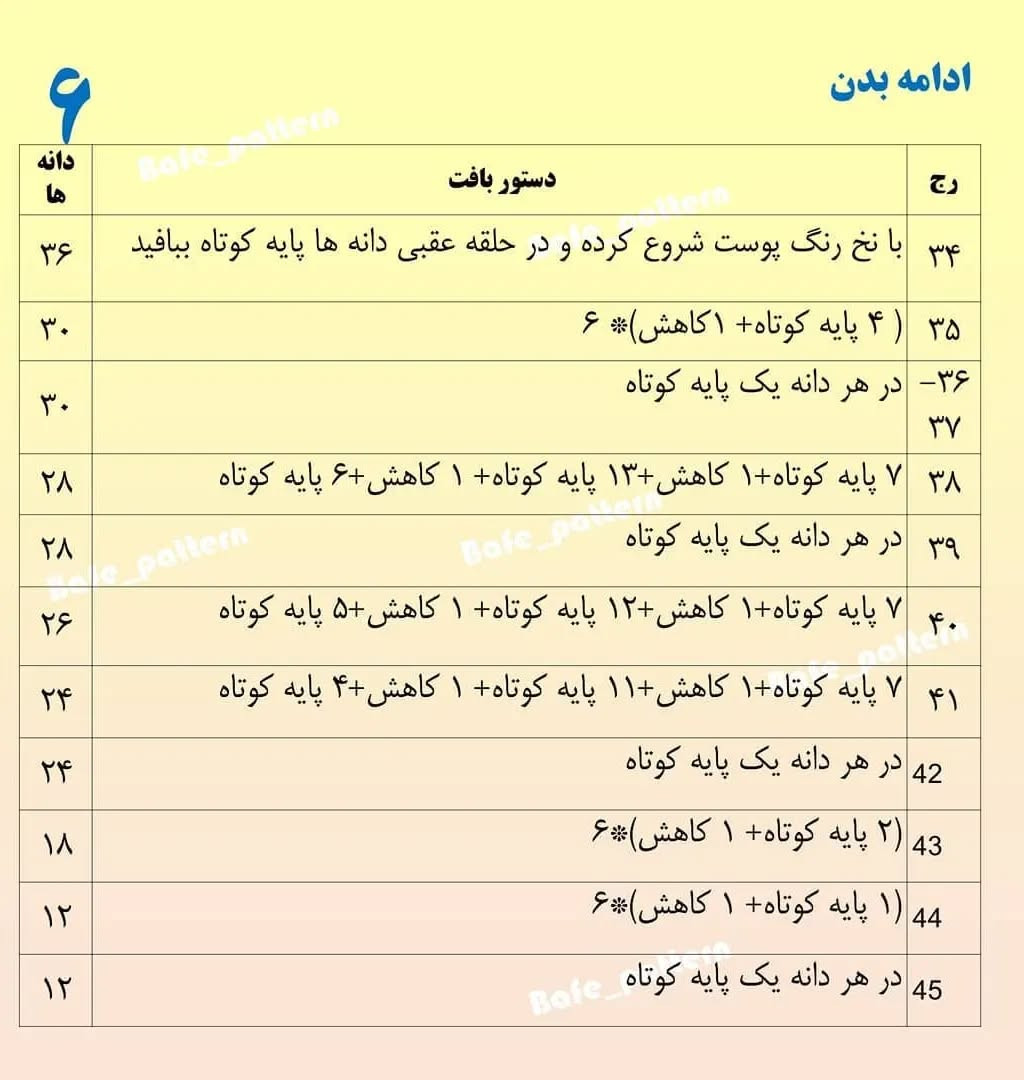 ادامه بدن
۶
رج دستور بافت دانه ها
۳۴ با نخ رنگ پوست شروع کرده و در حلقه عقبی دانه ها پایه کوتاه ببافید ۳۶
۳۵ ( ۴ پایه کوتاه+ ۱کاهش)* ۶ ۳۰
۳۶-۳۷ در هر دانه یک پایه کوتاه ۳۰
۳۸ ۷ پایه کوتاه+۱ کاهش+۱۳ پایه کوتاه+ ۱ کاهش+۶ پایه کوتاه ۲۸
۳۹ در هر دانه یک پایه کوتاه ۲۸
۴۰ ۷ پایه کوتاه+۱ کاهش+۱۲ پایه کوتاه+ ۱ کاهش+۵ پایه کوتاه ۲۶
۴۱ ۷ پایه کوتاه+۱ کاهش+۱۱ پایه کوتاه+ ۱ کاهش+۴ پایه کوتاه ۲۴
42 در هر دانه یک پایه کوتاه ۲۴
43 (۲ پایه کوتاه+ ۱ کاهش)*۶ ۱۸
44 (۱ پایه کوتاه+ ۱ کاهش)*۶ ۱۲
45 در هر دانه یک پایه کوتاه ۱۲
Bafe_pattern
Bafe_pattern
Bafe_pattern
Bafe_pattern
Bafe_pattern
Bafe_pattern